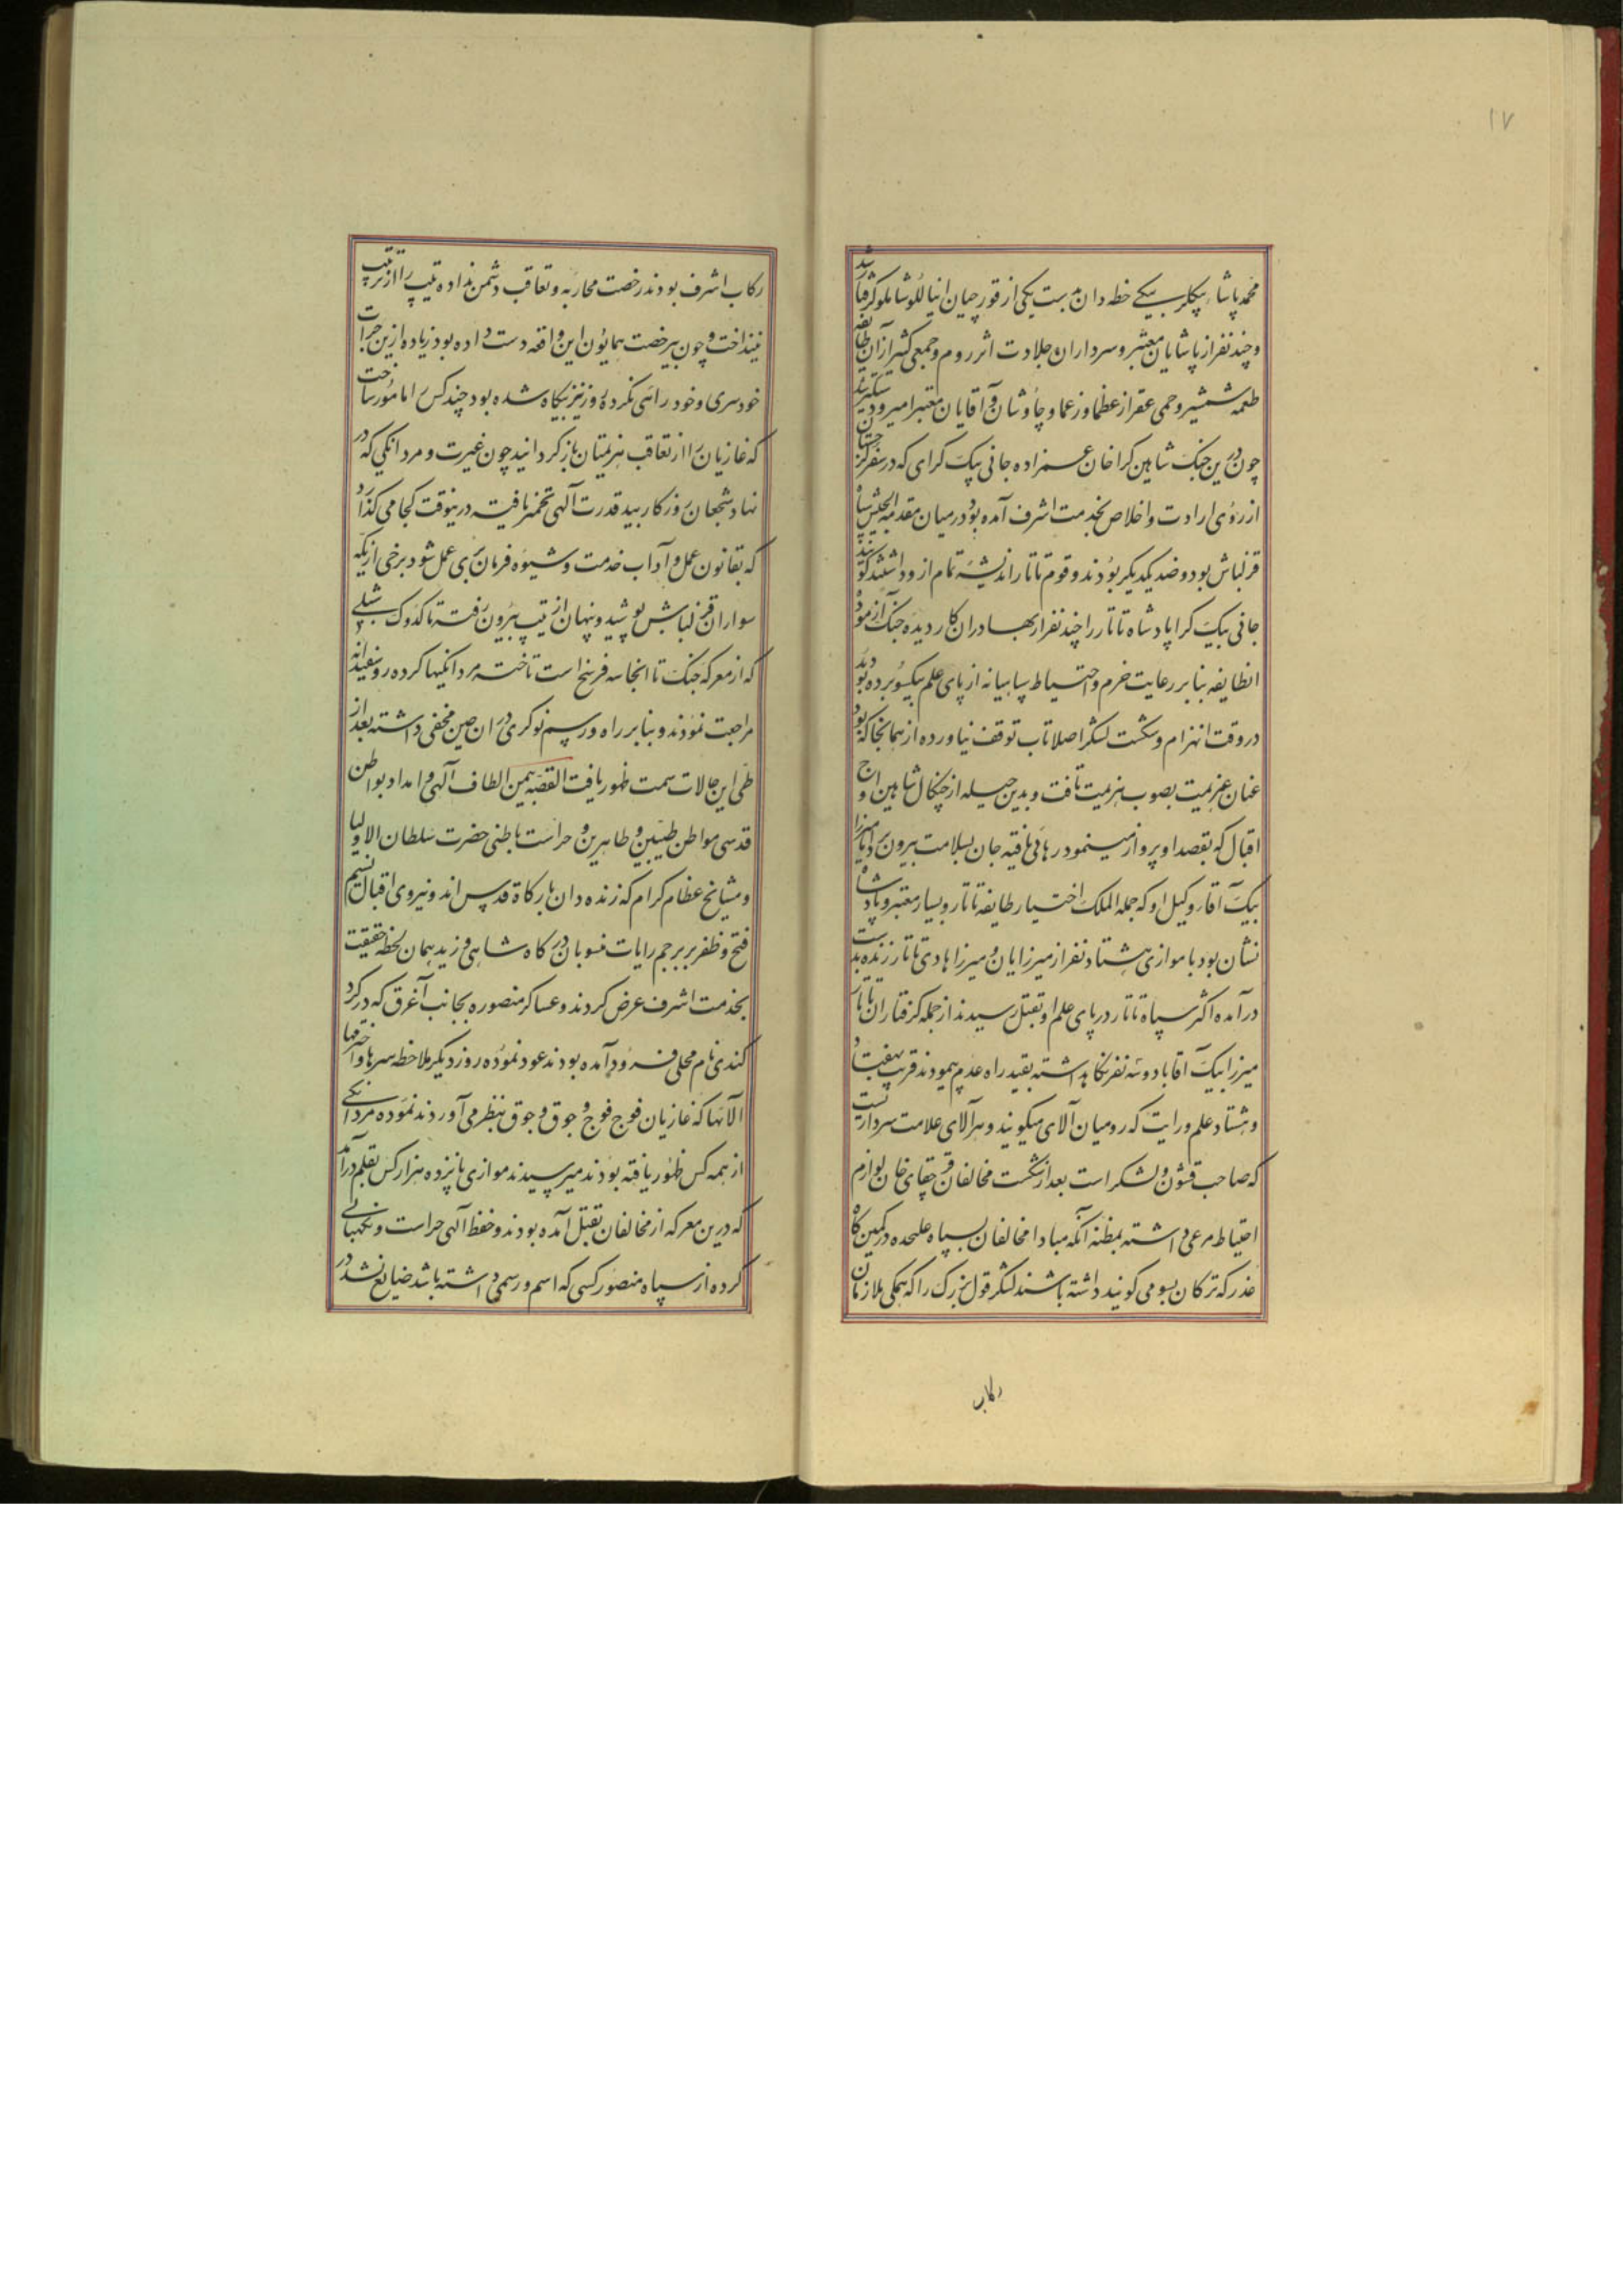 ۱۷
محمد پاشاء بیکلر بیکی خطه دان بدست یکی از قورچیان اینالو شاملو گرفتار شد
و چند نفر از پاشایان معتبر و سرداران جلادت اثر روم و جمعی کثیر از آن طایفه
طعمه شمشیر و جمی از عظما و زعما و چاوشان و آقایان معتبر اسیر و دستکیر شدند
چون درین جنک شاهین کرا خان عمزاده جانی بیک کرای که در سفر کرجستان
از روی ارادت و اخلاص بخدمت اشرف آمده بود در میان مقدمه الجیش سپاه
قزلباش بود و ضد یکدیکر بودند و قوم تاتار اندیشه تمام ازو داشتند کویند
جانی بیک کرا پادشاه تاتار را چند نفر از بهادران کار دیده جنک آزموده
انطایفه بنا بر رعایت حزم و احتیاط سپاهیانه از پای علم بیکسو برده بودند
در وقت انهزام و شکست لشکر اصلا تاب توقف نیاورده از همانجا که بود
عنان عزیمت بصوب هزیمت تافت و بدین حیله از چنکال شاهین اوج
اقبال که بقصد او پرواز مینمود رهائی یافته جان بسلامت بیرون برد اما میرزا
بیک آقا وکیل او که جمله الملک اختیار طایفه تاتار و بسیار معتبر و پادشاه
نشان بود با موازی هشتاد نفر از میرزایان و میرزا هادی تاتار زنده بدست
درآمده اکثر سپاه تاتار در پای علم او بقتل رسیدند از جمله کرفتاران تاتار
میرزا بیک آقا با دو سه نفر نکاهداشته بقیه راه عدم پیمودند قریب بهفتاد
و هشتاد علم و رایت که رومیان آلای میکویند و هر آلای علامت سرداریست
که صاحب قشون و لشکر است بعد از شکست مخالفان قرچقای خان لوازم
احتیاط مرعی داشته بمظنه آنکه مبادا مخالفان سپاه علیحده در کمین کاه
غدر که ترکان بسو می کویند داشته باشند لشکر قول بزرک را که همکی ملازمان
رکاب
رکاب اشرف بودند رخصت محاربه و تعاقب دشمن نداده تیپ را از ترتیب
نینداخت و چون بیرخصت همایون این واقعه دست داده بود زیاده ازین جرات
خودسری و خود رائی نکرده روز نیز بیکاه شده بود چند کس را مامور ساخت
که غازیان را از تعاقب هزیمتیان باز کردانید چون غیرت و مردانکی که در
نهاد شجعان روزکار بید قدرت آلهی تخمیر یافته در ینوقت کجا می کذارد
که بقانون عمل و آداب خدمت و شیوه فرمان بری عمل شود برخی از یکه
سواران قزلباش پوشیده و پنهان از تیپ بیرون رفته تا کدوک شبلی
که از معرکه جنک تا انجا سه فرسخ است تاخته مردانکیها کرده رو سفیدانه
مراجعت نمودند و بنابر راه و رسم نوکری در ان حین مخفی داشته بعد از
طی این حالات سمت ظهور یافت القصه بیمن الطاف آلهی و امداد بواطن
قدسی مواطن طیبین و طاهرین و حراست باطنی حضرت سلطان الاولیا
و مشایخ عظام کرام که زنده دلان بارکاه قدس اند و نیروی اقبال نسیم
فتح و ظفر بر پرچم رایات منسوبان درکاه شاهی وزید همان لحظه حقیقت
بخدمت اشرف عرض کردند و عساکر منصوره بجانب آغرق که در کرد
کندی نام محلی فرود آمده بودند عود نموده روز دیکر ملاحظه سرها و اخترمها
الآنها که غازیان فوج فوج و جوق و جوق بنظر می آوردند نموده مردانکی
از همه کس ظهور یافته بود میرسیدند موازی پانزده هزار کس بقلم درآمد
که درین معرکه از مخالفان بقتل آمده بودند و حفظ آلهی حراست و نکهبانی
کرده از سپاه منصور کسی که اسم و رسمی داشته باشد ضایع نشد در